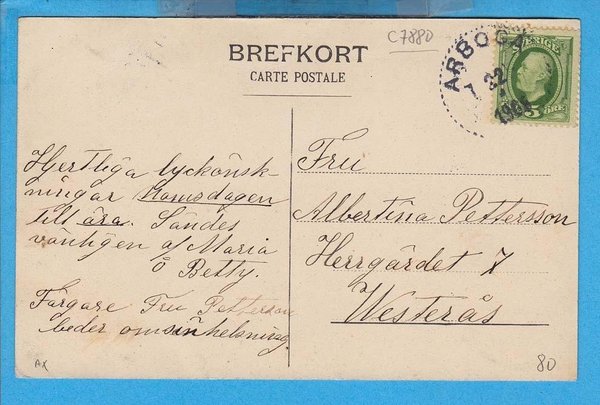 C7880
BREFKORT
CARTE POSTALE
ARBOGA
7 22
SVERIGE
5 ÖRE
Hjertliga lyckönsk-
ningar Namsdagen
till ära. Sändes
vänligen af Maria
o Betty.
Färgare Fru Petterson
beder om sin helsning.
Fru
Albertina Pettersson
Herrgärdet 7
Westerås
AX
80